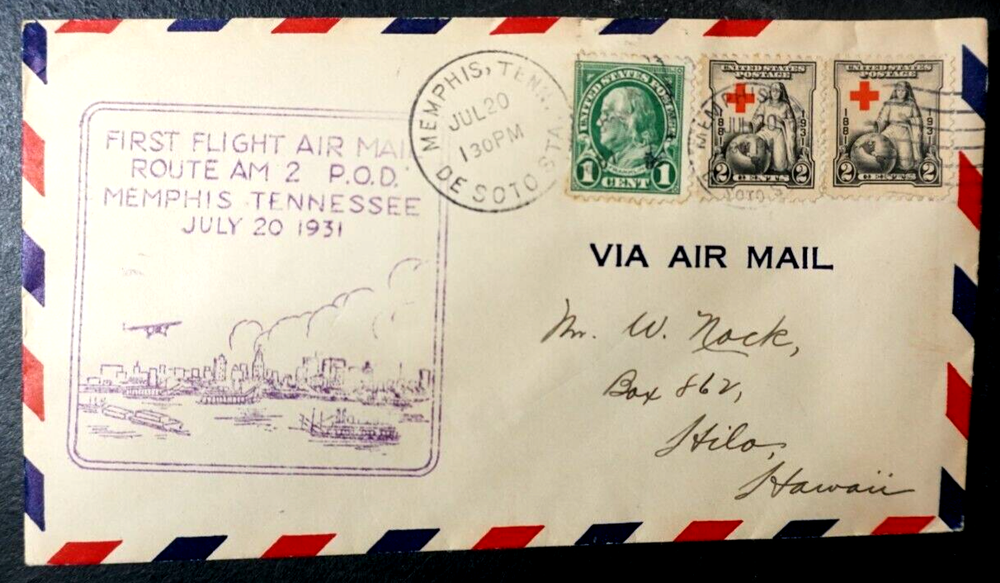 FIRST FLIGHT AIR MAIL
ROUTE AM 2 P.O.D.
MEMPHIS TENNESSEE
JULY 20 1931
MEMPHIS, TENN.
JUL 20
1 30 PM
DE SOTO STA.
UNITED STATES POSTAGE
FRANKLIN
1 CENT 1
UNITED STATES
POSTAGE
1881
1931
2 CENTS 2
MEMPHIS
JUL 20
UNITED STATES
POSTAGE
1881
1931
2 CENTS 2
VIA AIR MAIL
Mr. W. Nock,
Box 862,
Hilo,
Hawaii